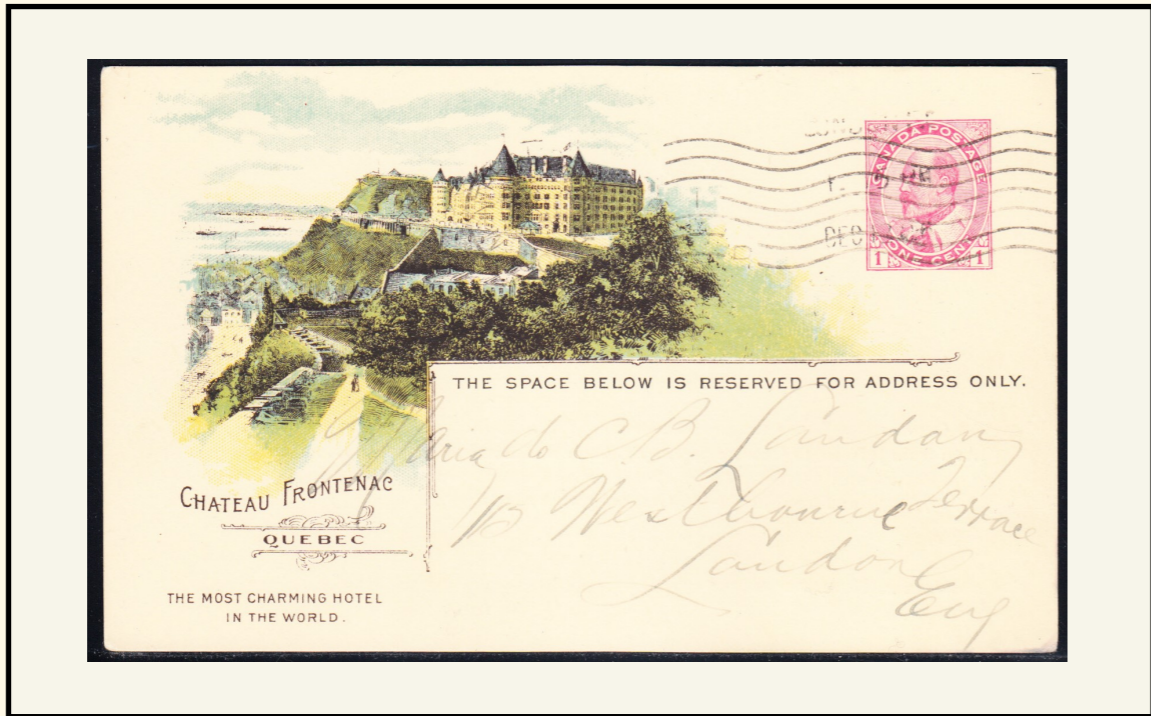 CANADA POSTAGE
ONE CENT
1 1
DEC
THE SPACE BELOW IS RESERVED FOR ADDRESS ONLY.
C. B. London
Westbourne Terrace
London
Eng
CHATEAU FRONTENAC
QUEBEC
THE MOST CHARMING HOTEL
IN THE WORLD.